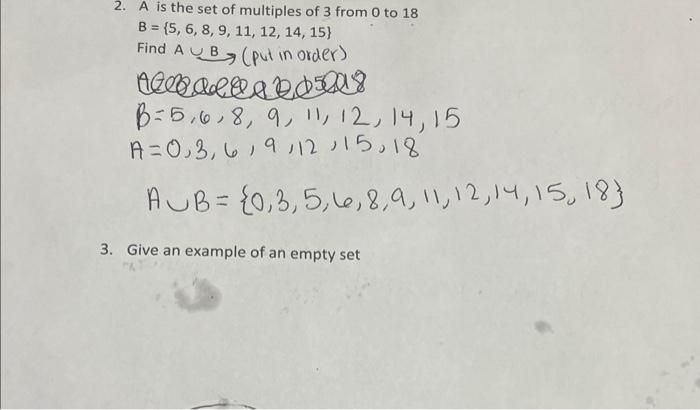 2. A is the set of multiples of 3 from 0 to 18
B = {5, 6, 8, 9, 11, 12, 14, 15}
Find A ∪ B → (put in order)
B = 5, 6, 8, 9, 11, 12, 14, 15
A = 0, 3, 6, 9, 12, 15, 18
A ∪ B = {0, 3, 5, 6, 8, 9, 11, 12, 14, 15, 18}
3. Give an example of an empty set